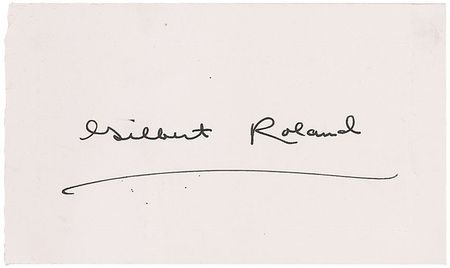 Gilbert Roland